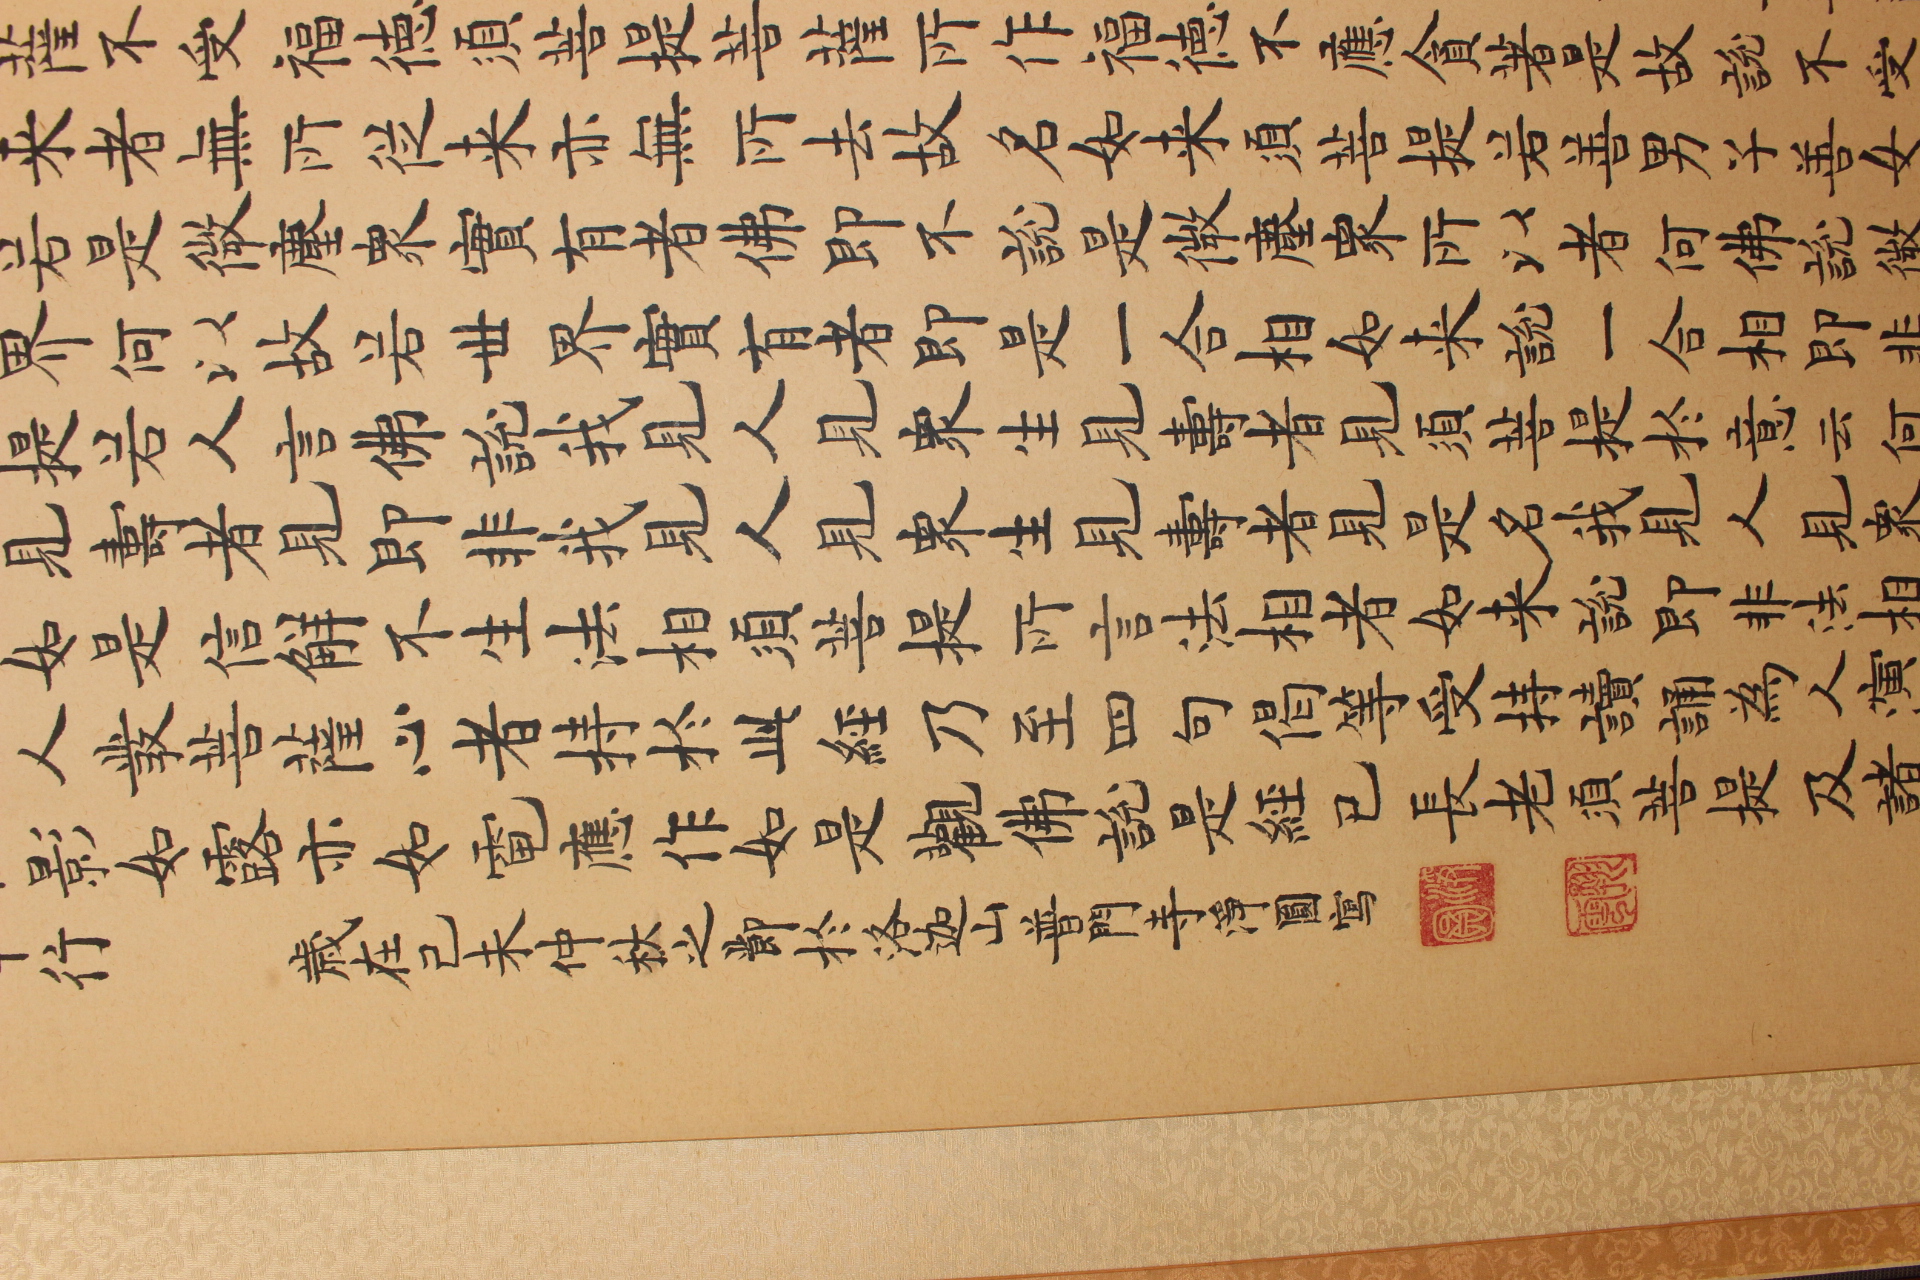 薩不受福德須菩提菩薩所作福德不應貪著是故說不受
来者無所從来亦無所去故名如来須菩提若善男子善女
若是微塵眾實有者佛即不說是微塵眾所以者何佛說微
界何以故若世界實有者即是一合相如来說一合相即非
提若人言佛說我見人見眾生見壽者見須菩提於意云何
見壽者見即非我見人見眾生見壽者見是名我見人見眾
如是信解不生法相須菩提所言法相者如来說即非法相
人發菩薩心者持於此經乃至四句偈等受持讀誦為人演
影如露亦如電應作如是觀佛說是經已長老須菩提及諸
行
歲在己未仲秋之節於洛迦山普門寺淨圓寫